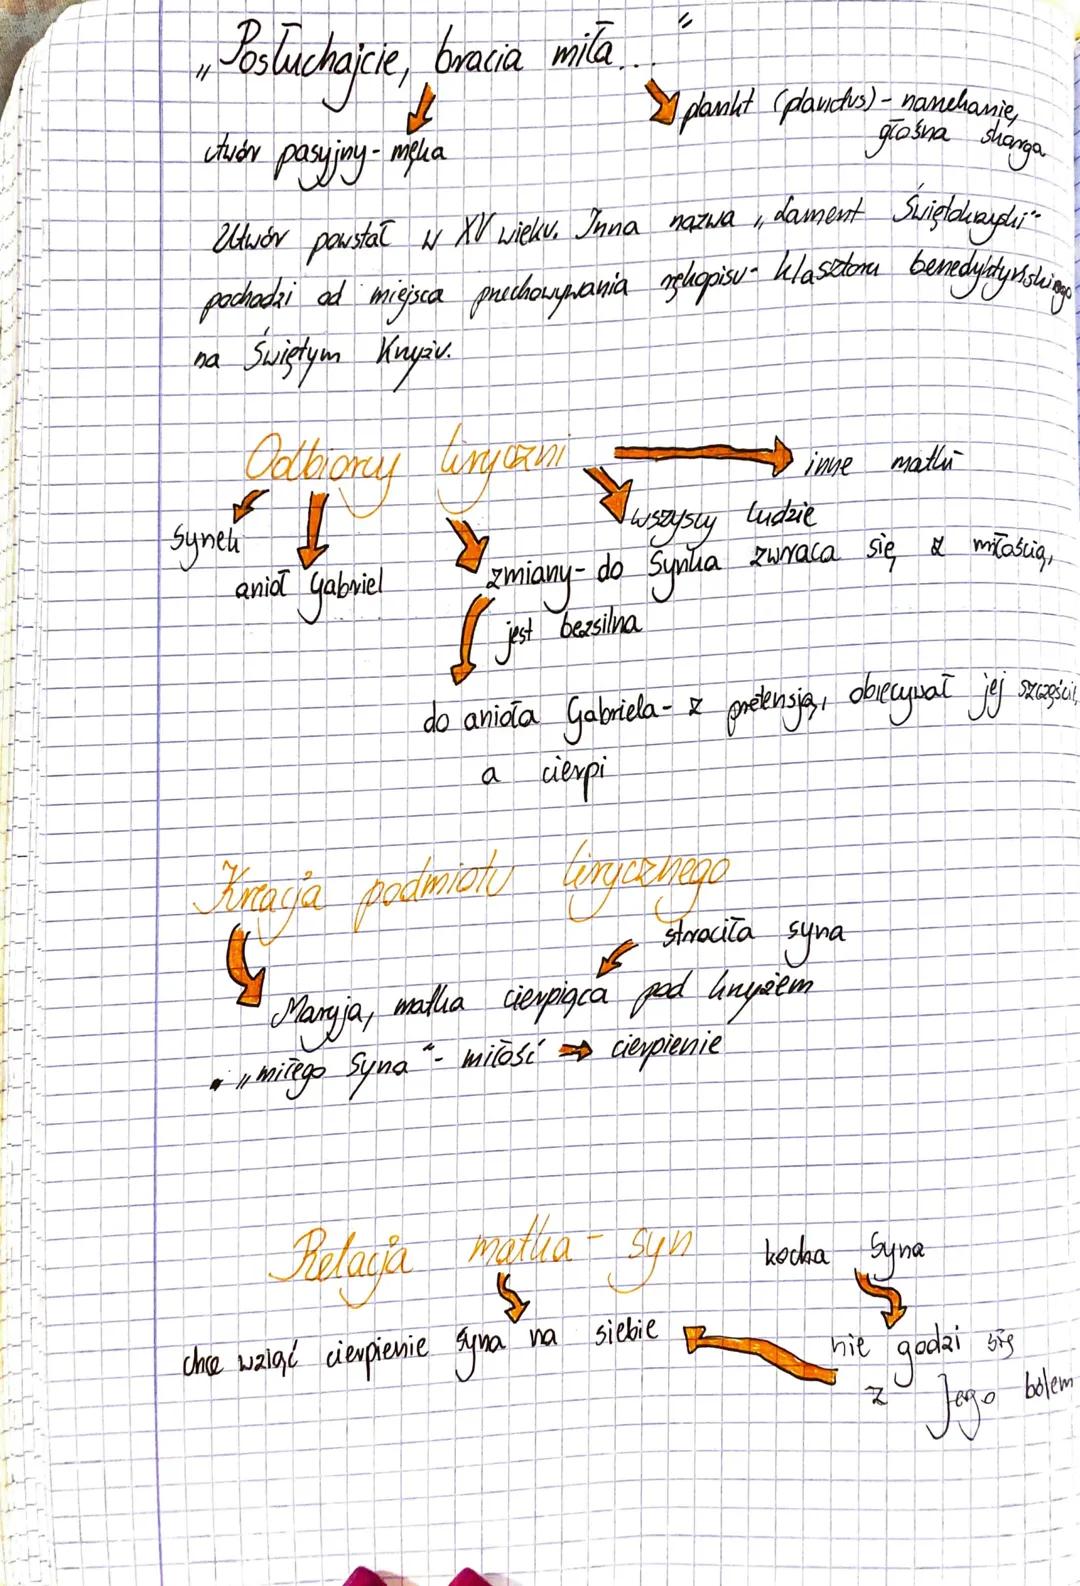 „Posłuchajcie, bracia miła..."
utwór pasyjny - męka
plankt (planctus) - narzekanie,
głośna skarga
Utwór powstał w XV wieku. Inna nazwa „Lament Świętokrzyski"
pochodzi od miejsca przechowywania rękopisu - klasztoru benedyktyńskiego
na Świętym Krzyżu.
Odbiorcy liryczni
inne matki
wszyscy ludzie
synek
anioł Gabriel
zmiany - do Synka zwraca się z miłością,
jest bezsilna
do anioła Gabriela - z pretensją, obiecywał jej szczęście,
a cierpi
Kreacja podmiotu lirycznego
straciła syna
Maryja, matka cierpiąca pod krzyżem
• „miłego Syna" - miłość → cierpienie
Relacja matka - syn
kocha Syna
chce wziąć cierpienie syna na siebie
nie godzi się
z Jego bólem